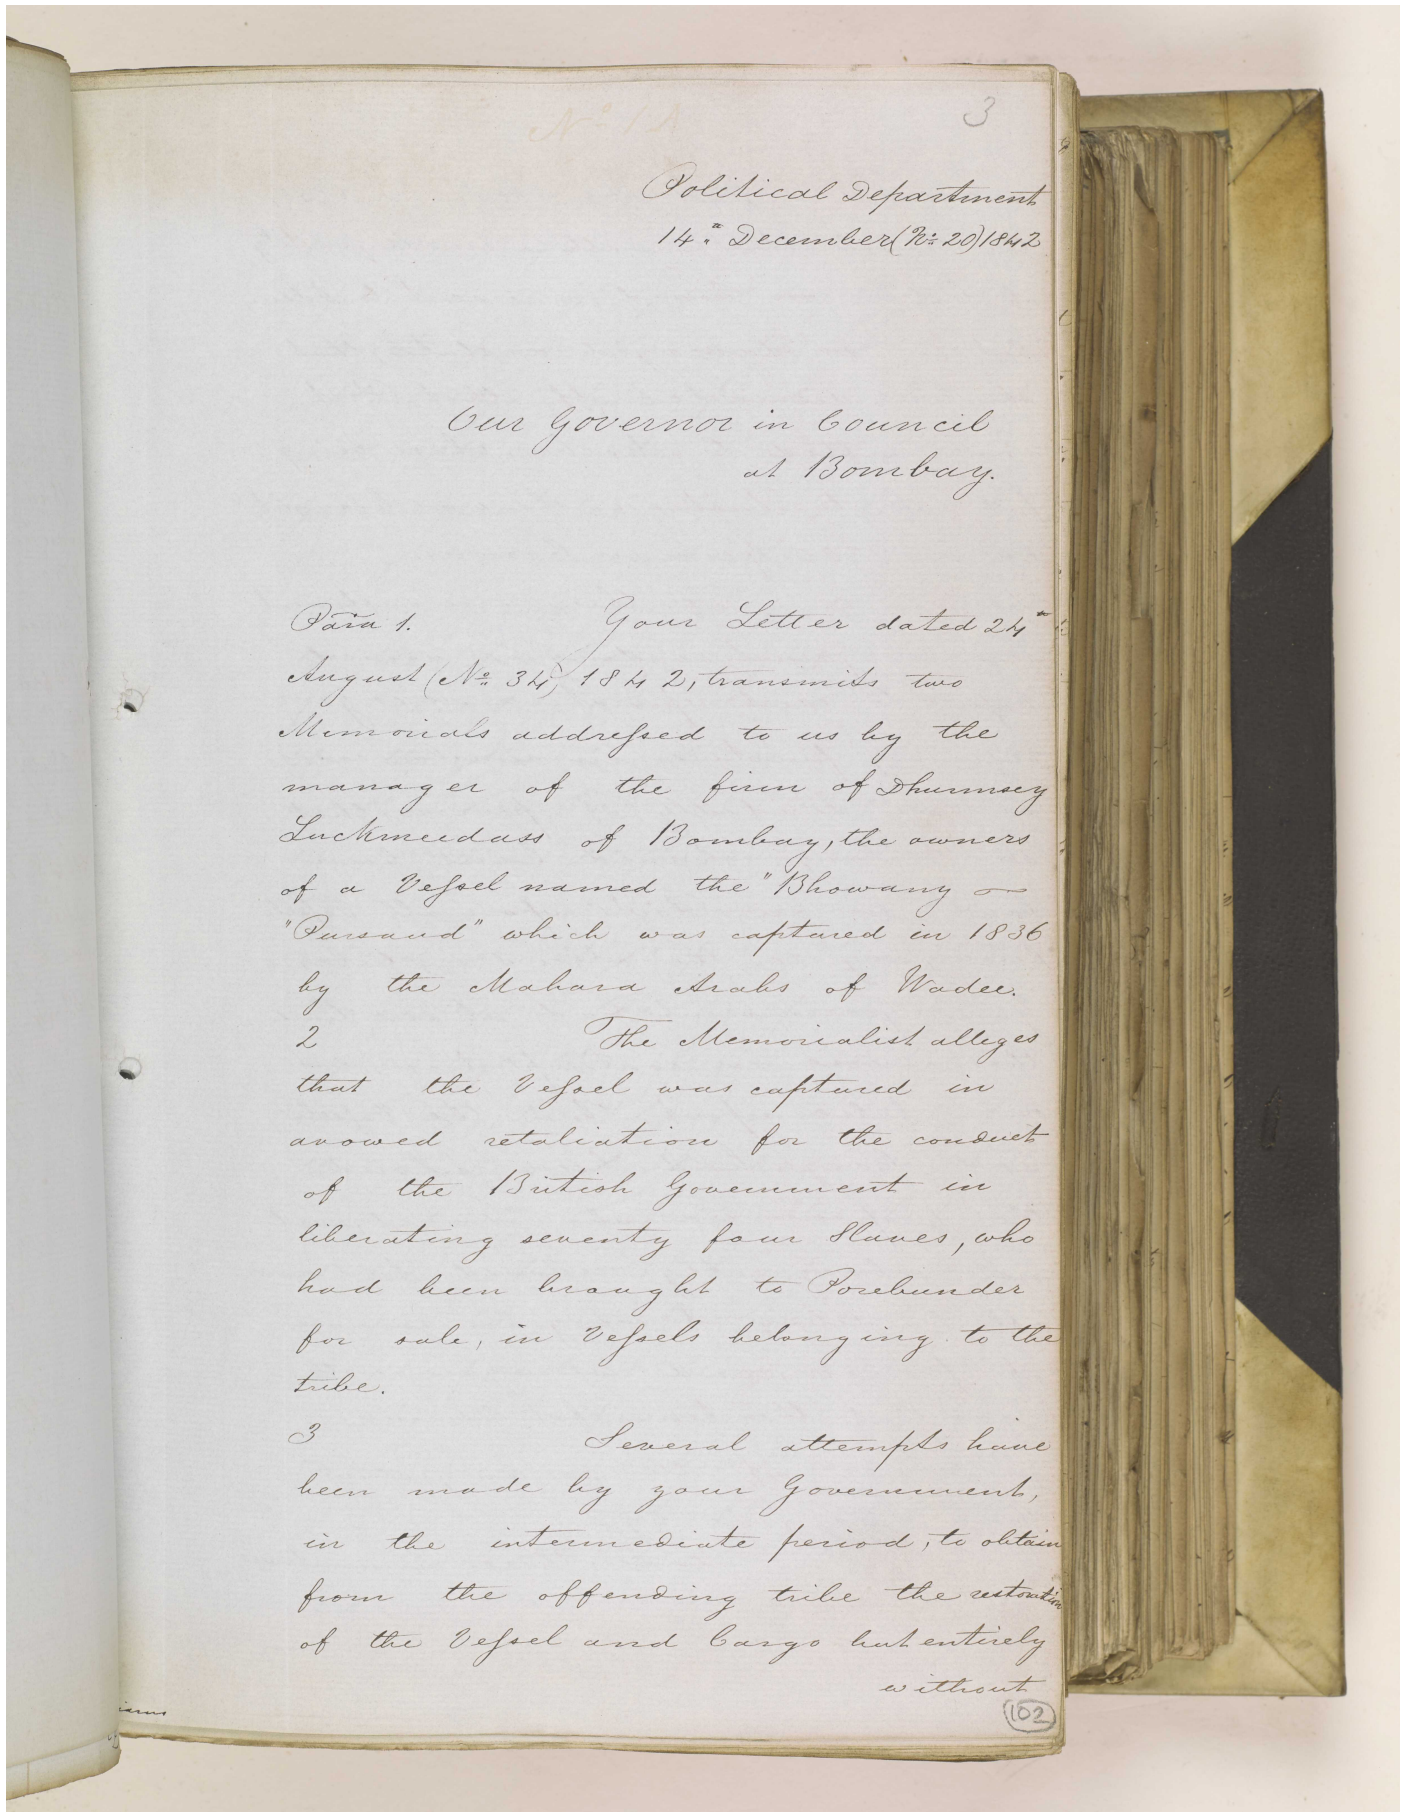 3
Political Department
14th December (No 20) 1842
Our Governor in Council
at Bombay.
Para 1. Your Letter dated 24th
August (No 34) 1842, transmits two
Memorials addreſsed to us by the
manager of the firm of Dhurmsey
Luckmeedass of Bombay, the owners
of a Veſsel named the "Bhowany
"Pursaud" which was captured in 1836
by the Mahara Arabs of Wadee.
2 The Memorialist alleges
that the Veſsel was captured in
avowed retaliation for the conduct
of the British Government in
liberating seventy four Slaves, who
had been brought to Porebunder
for sale, in Veſsels belonging to the
tribe.
3 Several attempts have
been made by your Government,
in the intermediate period, to obtain
from the offending tribe the restoration
of the Veſsel and Cargo but entirely
without
102